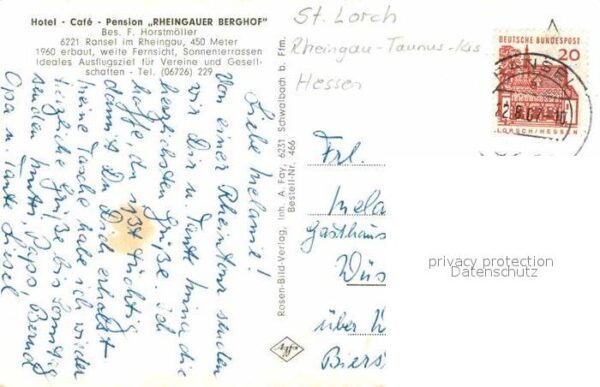 Hotel - Café - Pension „RHEINGAUER BERGHOF"
Bes. F. Horstmöller
6221 Ransel im Rheingau, 450 Meter
1960 erbaut, weite Fernsicht, Sonnenterrassen
Ideales Ausflugsziel für Vereine und Gesell-
schaften - Tel. (06726) 229
Liebe Melanie!
Von einer Rheintour senden
wir Dir u. Tante Minna die
herzlichsten Grüße. Ich
hoffe, du ißt tüchtig
damit Du Dich erholst
meine Tasche habe ich wieder
herzliche Grüße bis Sonntag
senden Mutti Papa Bernd
Opa u. Tante Liesel
Rosen-Bild-Verlag, Inh. A. Fay, 6231 Schwalbach b. Ffm.
Bestell-Nr. 466
Agfa
St. Lorch
Rheingau-Taunus-Kris
Hessen
DEUTSCHE BUNDESPOST
20
LORSCH/HESSEN
RANSEL
Frl.
Mela
Gasthaus
Wüs
über
Biers
privacy protection
Datenschutz